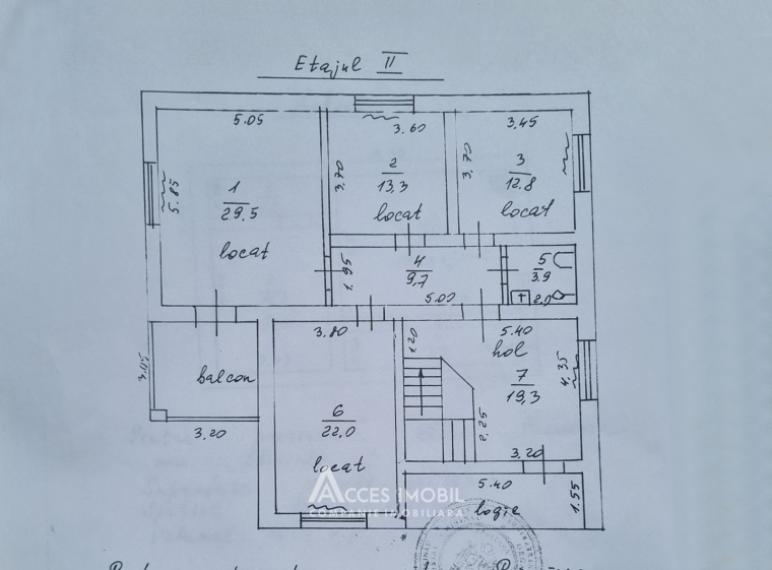 Etajul II
5.05
3.60
3.45
5.85
1
29.5
locat
3.70
2
13.3
locat
3.70
3
12.8
locat
1.95
4
9.7
5.00
5
3.9
2.0
3.80
1.20
5.40
hol
7
19.3
4.35
balcon
3.20
6
22.0
locat
2.25
3.20
5.40
1.55
logie
ACCES IMOBIL
COMPANIE IMOBILIARA